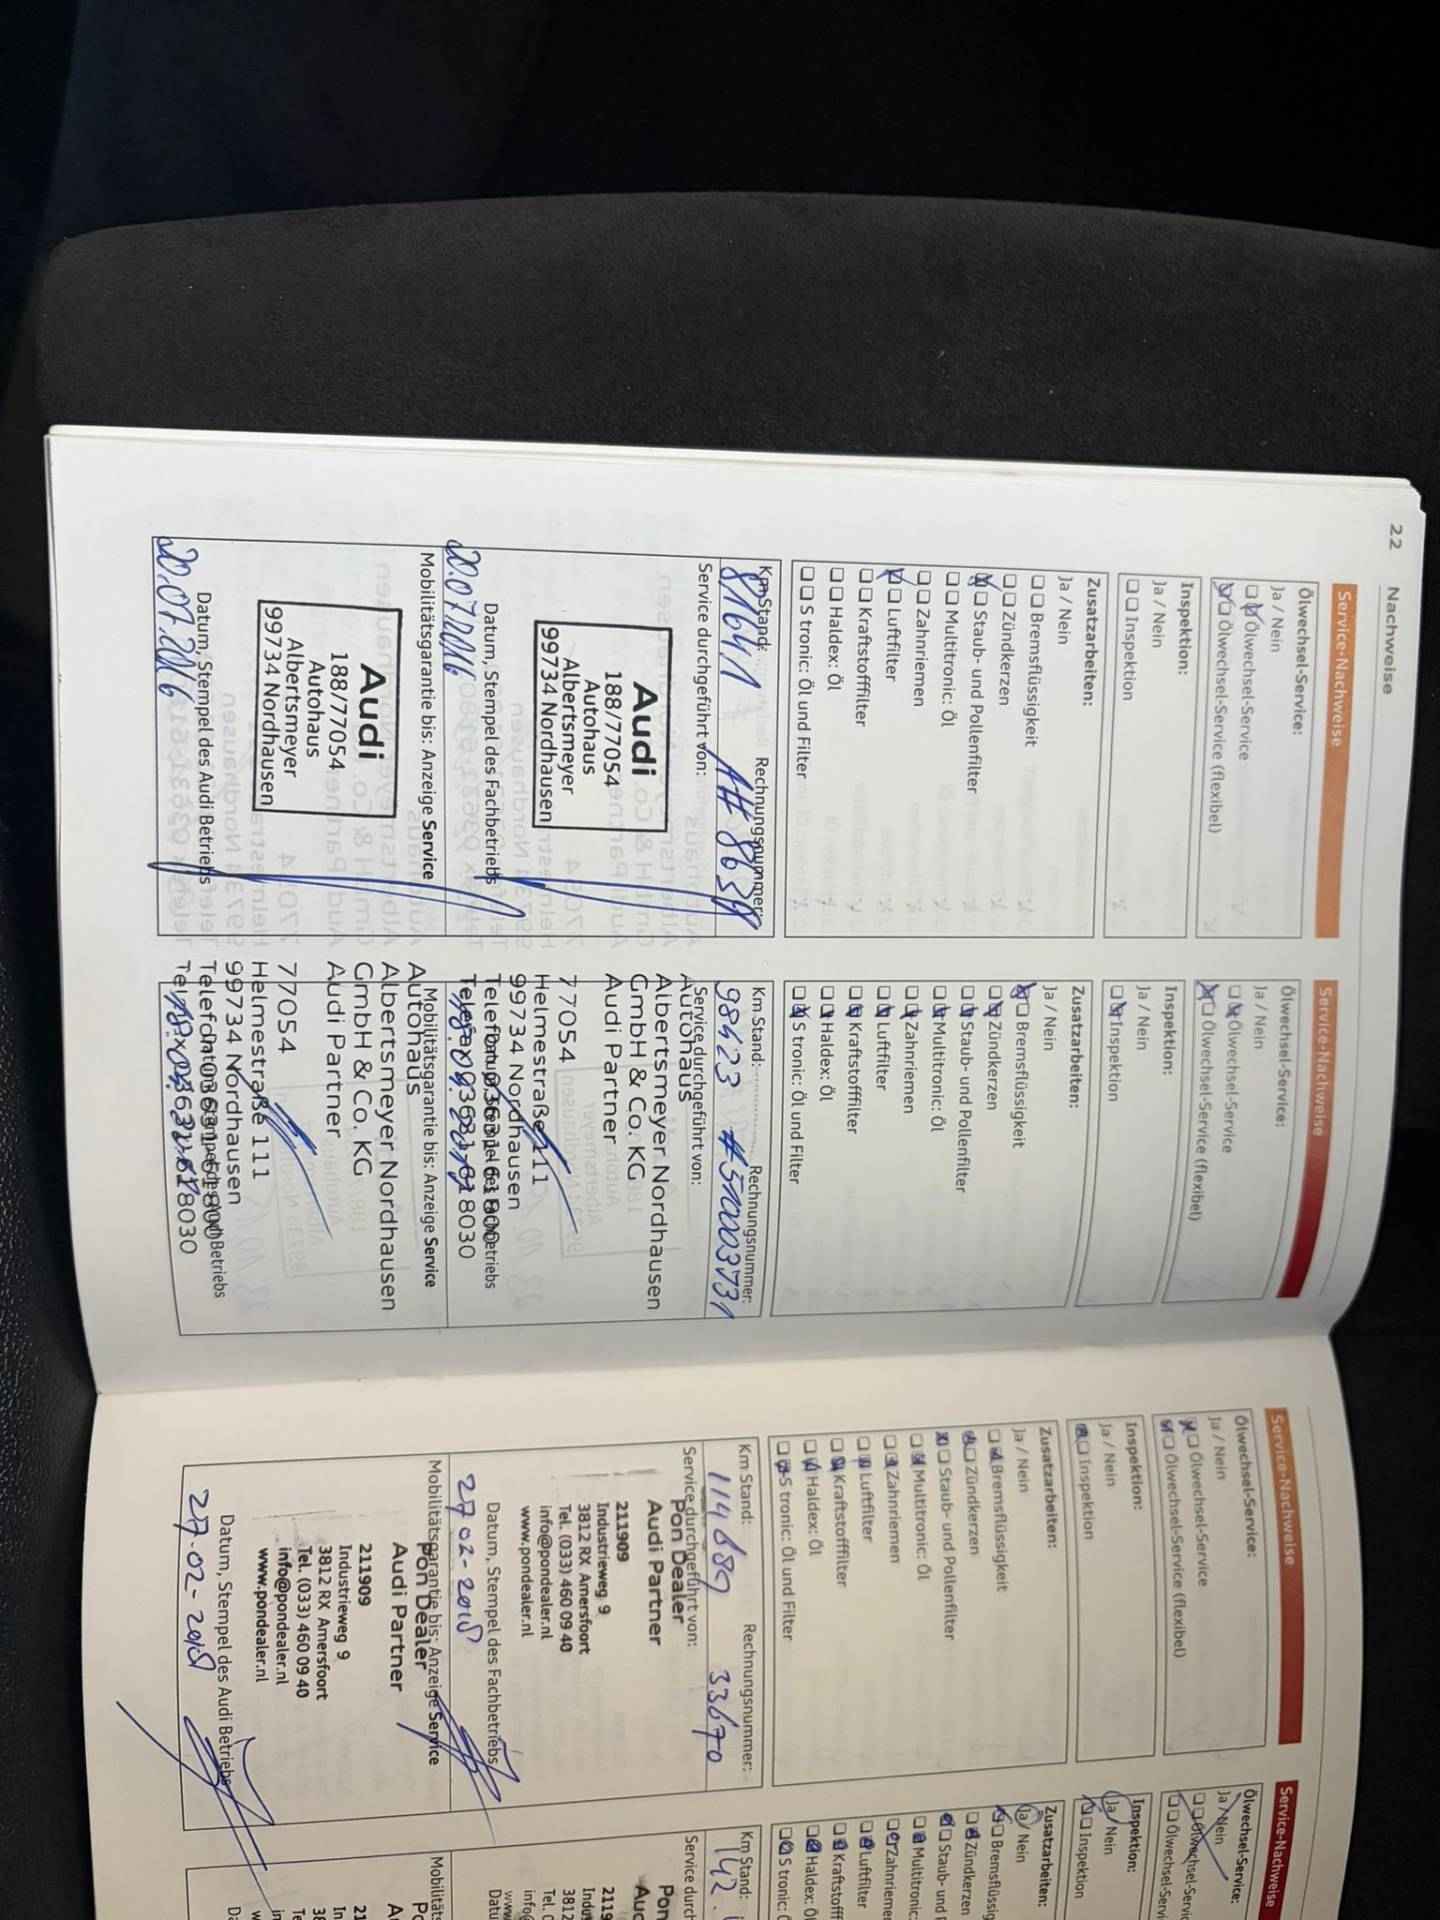 22 Nachweise
Service-Nachweise
Ölwechsel-Service:
Ja / Nein
Ölwechsel-Service
Ölwechsel-Service (flexibel)
Inspektion:
Ja / Nein
Inspektion
Zusatzarbeiten:
Ja / Nein
Bremsflüssigkeit
Zündkerzen
Staub- und Pollenfilter
Multitronic: Öl
Zahnriemen
Luftfilter
Kraftstofffilter
Haldex: Öl
S tronic: Öl und Filter
Km Stand: Rechnungsnummer:
81641
Service durchgeführt von:
Audi
188/77054
Autohaus
Albertsmeyer
99734 Nordhausen
20.07.2016
Datum, Stempel des Fachbetriebs
Mobilitätsgarantie bis: Anzeige Service
Audi
188/77054
Autohaus
Albertsmeyer
99734 Nordhausen
20.07.2016
Datum, Stempel des Audi Betriebs
Service-Nachweise
Ölwechsel-Service:
Ja / Nein
Ölwechsel-Service
Ölwechsel-Service (flexibel)
Inspektion:
Ja / Nein
Inspektion
Zusatzarbeiten:
Ja / Nein
Bremsflüssigkeit
Zündkerzen
Staub- und Pollenfilter
Multitronic: Öl
Zahnriemen
Luftfilter
Kraftstofffilter
Haldex: Öl
S tronic: Öl und Filter
Km Stand: Rechnungsnummer:
98423 #51003731
Service durchgeführt von:
Autohaus
Albertsmeyer Nordhausen
GmbH & Co. KG
Audi Partner
77054
Helmestraße 111
99734 Nordhausen
Mobilitätsgarantie bis: Anzeige Service
Autohaus
Albertsmeyer Nordhausen
GmbH & Co. KG
Audi Partner
77054
Helmestraße 111
99734 Nordhausen
Service-Nachweise
Ölwechsel-Service:
Ja / Nein
Ölwechsel-Service
Ölwechsel-Service (flexibel)
Inspektion:
Ja / Nein
Inspektion
Zusatzarbeiten:
Ja / Nein
Bremsflüssigkeit
Zündkerzen
Staub- und Pollenfilter
Multitronic: Öl
Zahnriemen
Luftfilter
Kraftstofffilter
Haldex: Öl
S tronic: Öl und Filter
Km Stand: Rechnungsnummer:
114689 33670
Service durchgeführt von:
Pon Dealer
Audi Partner
211909
Industrieweg 9
3812 RX Amersfoort
Tel. (033) 460 09 40
info@pondealer.nl
www.pondealer.nl
Datum, Stempel des Fachbetriebs
27-02-2018
Mobilitätsgarantie bis: Anzeige Service
Pon Dealer
Audi Partner
211909
Industrieweg 9
3812 RX Amersfoort
Tel. (033) 460 09 40
info@pondealer.nl
www.pondealer.nl
Datum, Stempel des Audi Betriebs
27-02-2018
Service-Nachweise
Ölwechsel-Service:
Ja / Nein
Ölwechsel-Service
Ölwechsel-Servi
Inspektion:
Ja / Nein
Inspektion
Zusatzarbeiten:
Ja / Nein
Bremsflüssig
Zündkerzen
Staub- und
Multitronic:
Zahnrieme
Luftfilter
Kraftstoff
Haldex: Öl
S tronic:
Km Stand:
142.
Service durch
Pon
Tel.
Mobilitäts